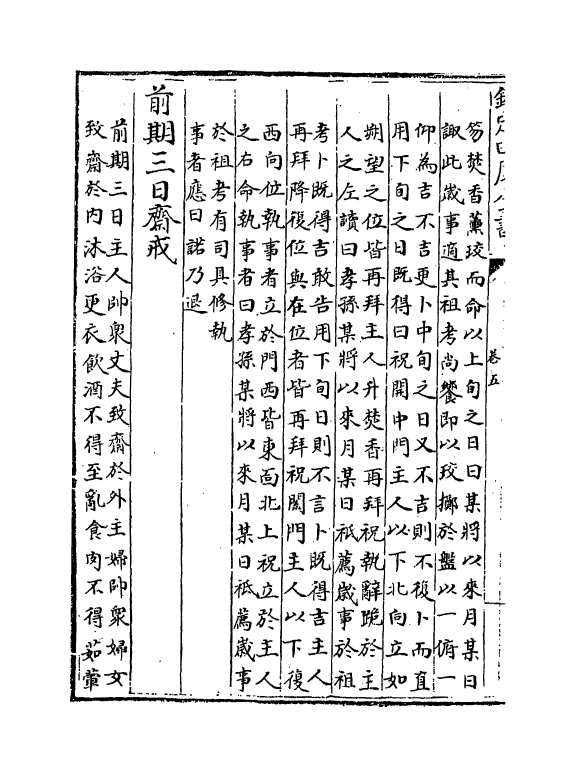 欽定四庫全書
卷五
笏焚香薰珓而命以上旬之日曰某將以來月某日
諏此歲事適其祖考尚饗即以珓擲於盤以一俯一
仰為吉不吉更卜中旬之日又不吉則不復卜而直
用下旬之日既得日祝開中門主人以下北向立如
朔望之位皆再拜主人升焚香再拜祝執辭跪於主
人之左讀曰孝孫某將以來月某日祗薦歲事於祖
考卜既得吉敢告用下旬日則不言卜既得吉主人
再拜降復位與在位者皆再拜祝闔門主人以下復
西向位執事者立於門西皆東面北上祝立於主人
之右命執事者曰孝孫某將以來月某日祗薦歲事
於祖考有司具修執
事者應曰諾乃退
前期三日齋戒
前期三日主人帥衆丈夫致齋於外主婦帥衆婦女
致齋於内沐浴更衣飲酒不得至亂食肉不得茹葷